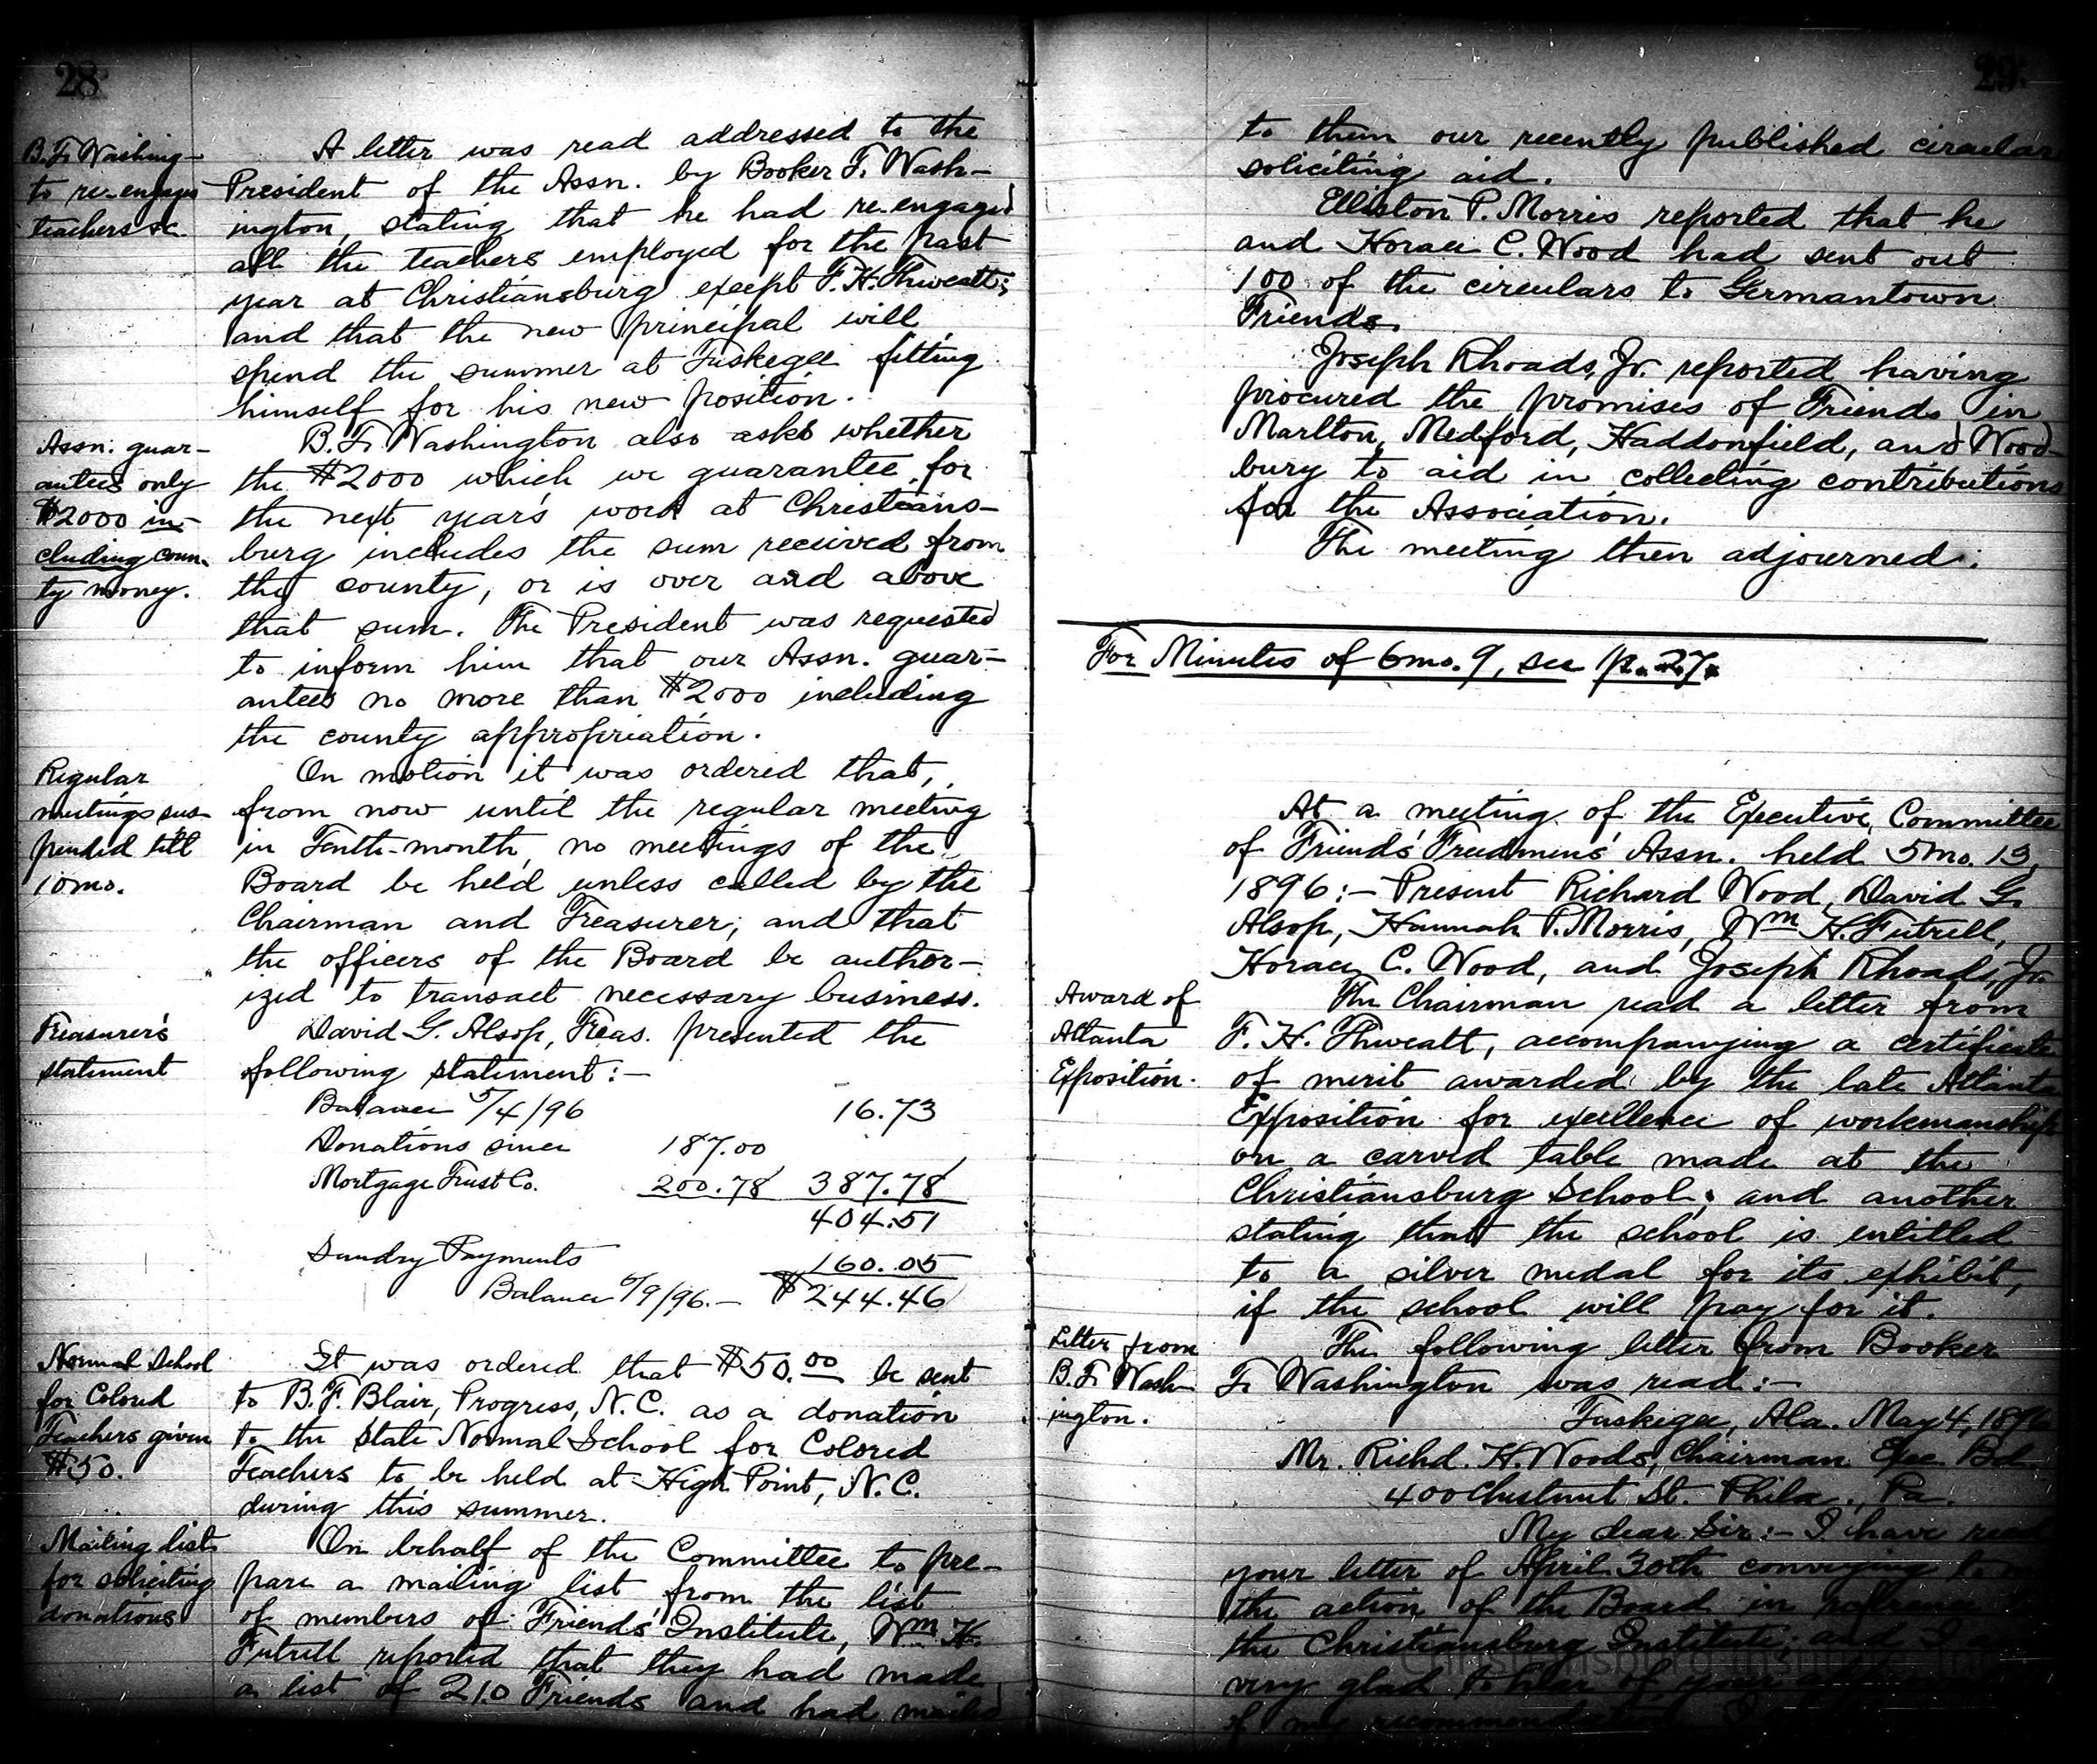 28
B.T. Washing-
to re-engage
teachers &c.
A letter was read addressed to the
President of the Assn. by Booker T. Wash-
ington, stating that he had re-engaged
all the teachers employed for the past
year at Christiansburg except F.H. Thweatt;
and that the new principal will
spend the summer at Tuskegee fitting
himself for his new position.
Assn. guar-
antees only
$2000 in-
cluding coun-
ty money.
B.T. Washington also asks whether
the $2000 which we guarantee for
the next year's work at Christians-
burg includes the sum received from
the county, or is over and above
that sum. The President was requested
to inform him that our Assn. guar-
antees no more than $2000 including
the county appropriation.
Regular
meetings sus-
pended till
10mo.
On motion it was ordered that,
from now until the regular meeting
in Tenth-month, no meetings of the
Board be held unless called by the
Chairman and Treasurer; and that
the officers of the Board be author-
ized to transact necessary business.
Treasurer's
statement
David G. Alsop, Treas. presented the
following statement:-
Balance 5/4/96 16.73
Donations since 187.00
Mortgage Trust Co. 200.78 387.78
404.51
Sundry Payments 160.05
Balance 6/9/96.- $244.46
Normal School
for Colored
Teachers given
$50.
It was ordered that $50.00 be sent
to B.F. Blair, Progress, N.C. as a donation
to the State Normal School for Colored
Teachers to be held at High Point, N.C.
during this summer.
Mailing list
for soliciting
donations
On behalf of the Committee to pre-
pare a mailing list from the list
of members of Friends' Institute, Wm H.
Futrell reported that they had made
a list of 210 Friends and had mailed
29.
to them our recently published circular
soliciting aid.
Elliston P. Morris reported that he
and Horace C. Wood had sent out
100 of the circulars to Germantown
Friends.
Joseph Rhoads, Jr. reported having
procured the promises of Friends in
Marlton, Medford, Haddonfield, and Wood-
bury to aid in collecting contributions
for the Association.
The meeting then adjourned.
For Minutes of 6mo. 9, see p. 27.
At a meeting of the Executive Committee
of Friends' Freedmen's Assn. held 5mo. 13,
1896:- Present Richard Wood, David G.
Alsop, Hannah P. Morris, Wm H. Futrell,
Horace C. Wood, and Joseph Rhoads, Jr.
Award of
Atlanta
Exposition.
The Chairman read a letter from
F. H. Thweatt, accompanying a certificate
of merit awarded by the late Atlanta
Exposition for excellence of workmanship
on a carved table made at the
Christiansburg School; and another
stating that the school is entitled
to a silver medal for its exhibit,
if the school will pay for it.
Letter from
B.T. Wash-
ington.
The following letter from Booker
T. Washington was read:-
Tuskegee, Ala. May 4, 1896
Mr. Richd. H. Woods, Chairman Exec. Bd.
400 Chestnut St. Phila., Pa.
My dear Sir:- I have
your letter of April 30th conveying to
the action of the Board in reference
the Christiansburg Institute; and I
very glad to hear of your
of my